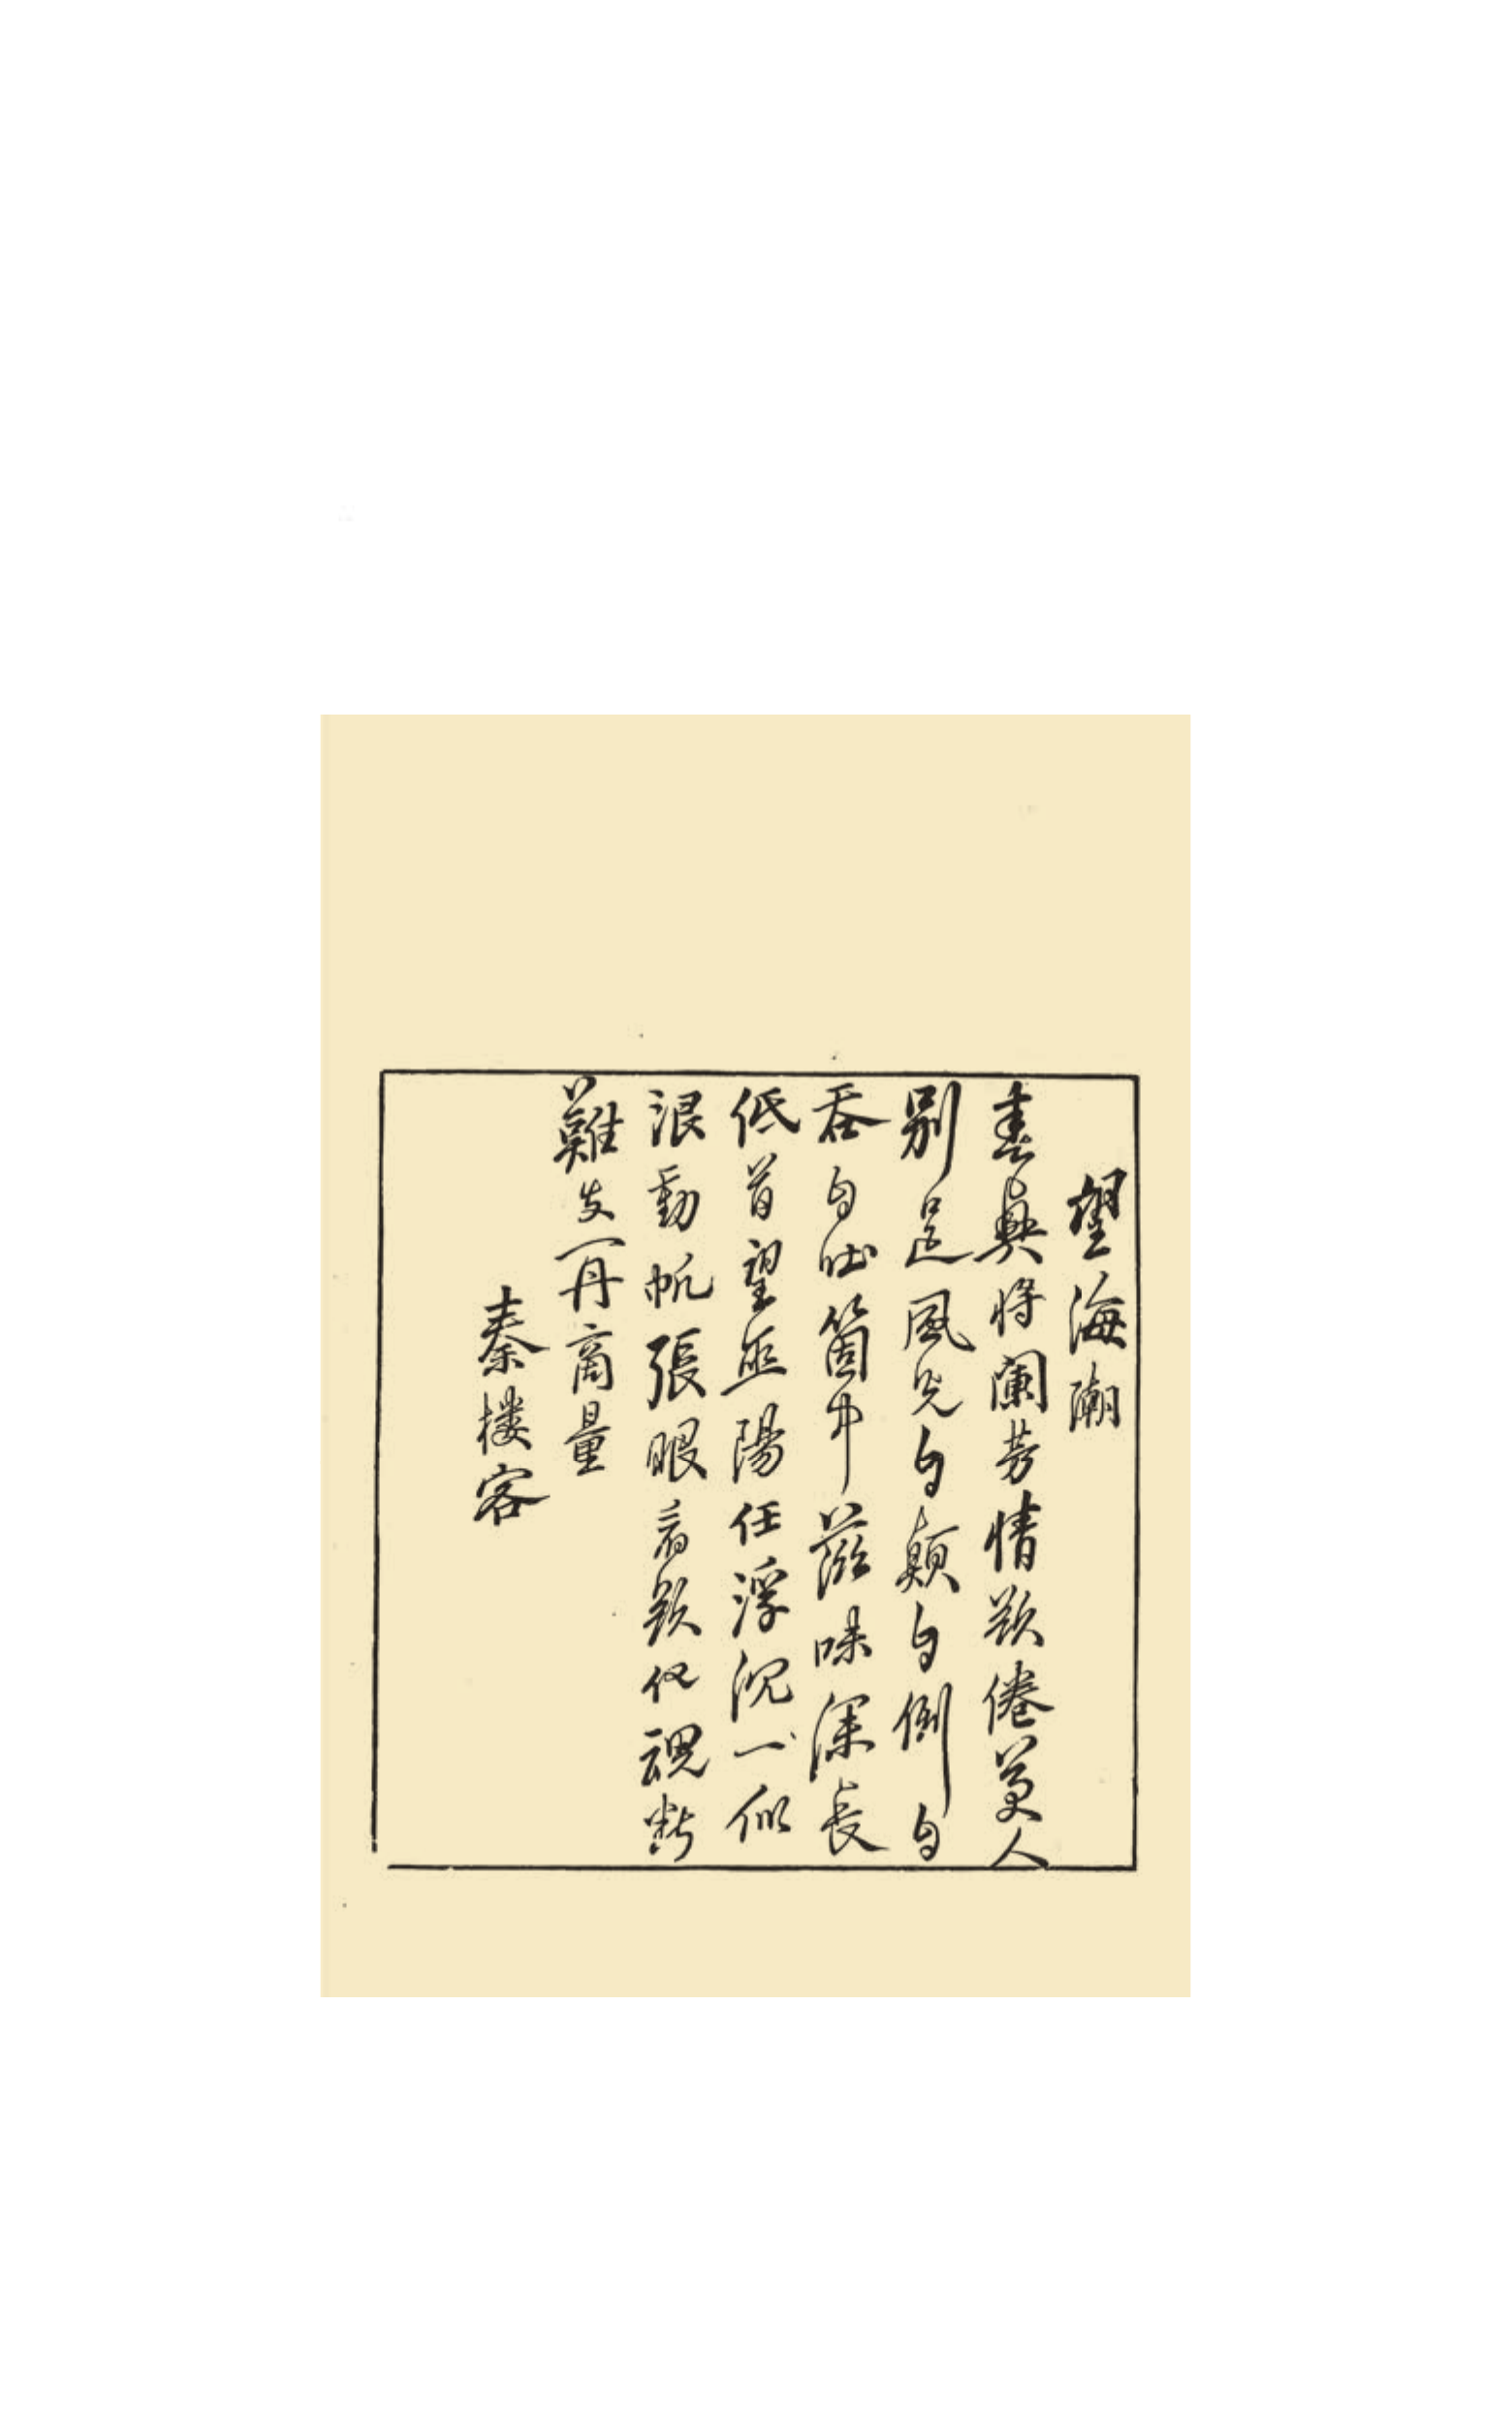 望海潮
春興將闌芳情欲倦美人
別逞風光自顛自倒自
吞自吐箇中滋味深長
低首望巫陽任浮沉一似
浪動帆張眼看欲化魂斷
難支再商量
秦樓客